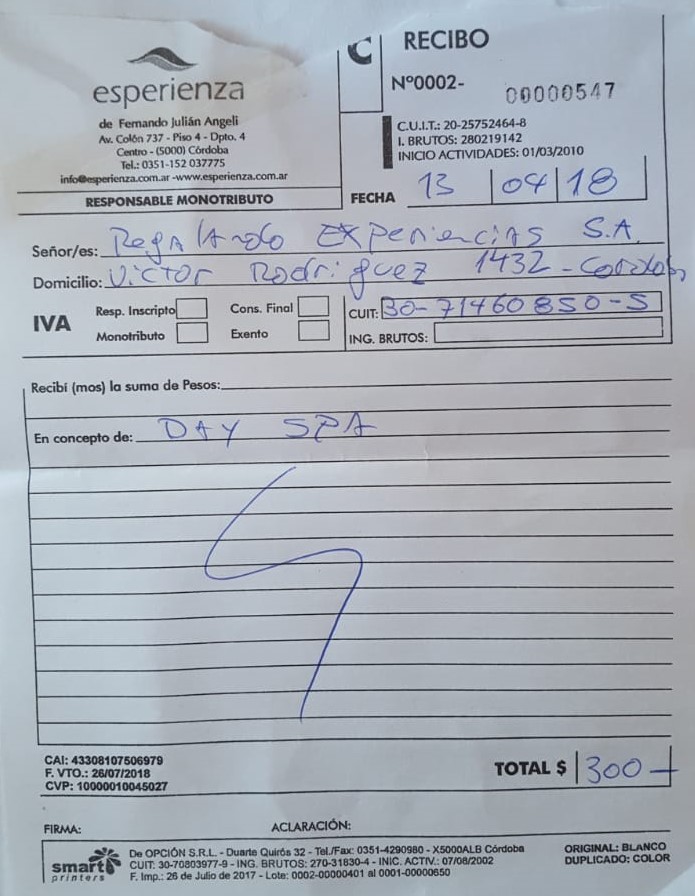 esperienza
de Fernando Julián Angeli
Av. Colón 737 - Piso 4 - Dpto. 4
Centro - (5000) Córdoba
Tel.: 0351-152 037775
info@esperienza.com.ar -www.esperienza.com.ar
RESPONSABLE MONOTRIBUTO
C
RECIBO
Nº0002- 00000547
C.U.I.T.: 20-25752464-8
I. BRUTOS: 280219142
INICIO ACTIVIDADES: 01/03/2010
FECHA 13 04 18
Señor/es: Regalando Experiencias S.A.
Domicilio: Victor Rodriguez 1432 - Cordoba
IVA
Resp. Inscripto
Cons. Final
Monotributo
Exento
CUIT: 30-71460850-5
ING. BRUTOS:
Recibí (mos) la suma de Pesos:
En concepto de: DAY SPA
CAI: 43308107506979
F. VTO.: 26/07/2018
CVP: 10000010045027
TOTAL $ 300-
FIRMA:
ACLARACIÓN:
smart printers
De OPCIÓN S.R.L. - Duarte Quirós 32 - Tel./Fax: 0351-4290980 - X5000ALB Córdoba
CUIT: 30-70803977-9 - ING. BRUTOS: 270-31830-4 - INIC. ACTIV.: 07/08/2002
F. Imp.: 26 de Julio de 2017 - Lote: 0002-00000401 al 0001-00000650
ORIGINAL: BLANCO
DUPLICADO: COLOR